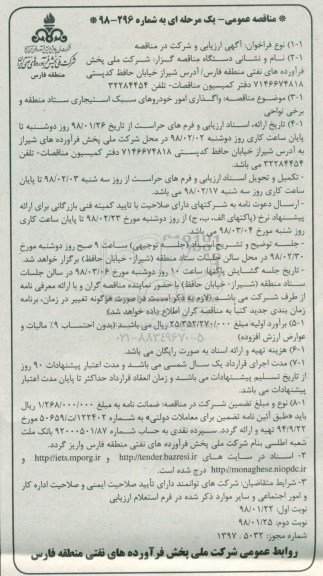 مناقصه عمومی- یک مرحله ای به شماره ۲۹۶-۹۸
شرکت ملی پخش فرآورده های نفتی ایران
منطقه فارس
۱-۱) نوع فراخوان: آگهی ارزیابی و شرکت در مناقصه
۲-۱) نام و نشانی دستگاه مناقصه گزار: شرکت ملی پخش
فرآورده های نفتی منطقه فارس/ آدرس شیراز خیابان حافظ کدپستی
۷۱۴۶۶۷۴۸۱۸ دفتر کمیسیون مناقصات- تلفن ۳۲۲۸۴۴۵۴
۳-۱) موضوع مناقصه: واگذاری امور خودروهای سبک استیجاری ستاد منطقه و
برخی نواحی
۴-۱) تاریخ ارائه، اسناد ارزیابی و فرم های حراست از تاریخ ۹۸/۰۱/۲۶ روز دوشنبه تا
پایان ساعت کاری روز دوشنبه ۹۸/۰۲/۰۲ در محل شرکت ملی پخش فرآورده های شیراز
به آدرس شیراز خیابان حافظ کدپستی ۷۱۴۶۶۷۴۸۱۸ دفتر کمیسیون مناقصات- تلفن
۳۲۲۸۴۴۵۴ می باشد.
- تکمیل و تحویل اسناد ارزیابی و فرم های حراست از روز سه شنبه ۹۸/۰۲/۰۳ تا پایان
ساعت کاری روز سه شنبه ۹۸/۰۲/۱۷ می باشد.
- ارسال دعوت نامه به شرکتهای دارای صلاحیت با تایید کمیته فنی بازرگانی برای ارائه
پیشنهاد نرخ (پاکتهای الف، ب، ج) از روز دوشنبه مورخ ۹۸/۰۲/۲۳ تا پایان ساعت کاری
روز شنبه مورخ ۹۸/۰۳/۰۴ می باشد.
- جلسه توضیح و تشریح اسناد (جلسه توجیهی) ساعت ۹ صبح روز دوشنبه مورخ
۹۸/۰۲/۳۰ در محل سالن جلسات ستاد منطقه (شیراز- خیابان حافظ) برگزار خواهد شد.
- تاریخ جلسه گشایش پاکتها: ساعت ۱۰ روز دوشنبه مورخ ۹۸/۰۳/۰۶ در سالن جلسات
ستاد منطقه (شیراز- خیابان حافظ) با حضور نماینده مناقصه گران و با ارائه معرفی نامه
از طرف شرکت می باشد. (لازم به ذکر است در صورت هرگونه تغییر در زمان، برنامه
زمان بندی جدید کتباً به مناقصه گران اطلاع داده خواهد شد)
۵-۱) برآورد اولیه مبلغ ۲۵/۳۵۲/۲۷۰/۰۰۰ ریال می باشد. (بدون احتساب ۹٪ مالیات و
عوارض ارزش افزوده)
۶-۱) هزینه تهیه و ارائه اسناد به صورت رایگان می باشد.
۷-۱) مدت اجرای قرارداد یک سال شمسی می باشد و مدت اعتبار پیشنهادات ۹۰ روز
از تاریخ تسلیم پیشنهادات می باشد و زمان انعقاد قرارداد حداکثر تا پایان مدت اعتبار
پیشنهادات می باشد.
۸-۱) نوع و مبلغ تضمین شرکت در مناقصه: ضمانت نامه به مبلغ ۱/۲۶۸/۰۰۰/۰۰۰ ریال
باید «طبق آئین نامه تضمین برای معاملات دولتی» به شماره ۱۲۳۴۰۲/ت۵۰۶۵۹ مورخ
۹۴/۹/۲۲ تهیه و ارائه گردد. سپرده نقدی به حساب شماره ۹۲۰۰۰۵۰۱/۸۷ بانک ملت
شعبه اطلسی بنام شرکت ملی پخش فرآورده های نفتی منطقه فارس واریز گردد.
۲- اسناد در سایت های http://tender.bazresi.ir و http://iets.mporg.ir و
http://monaghese.niopdc.ir درج شده است.
۳- شرایط متقاضیان: شرکت های توانمند دارای تأیید صلاحیت ایمنی و صلاحیت اداره کار
و امور اجتماعی و سایر موارد ذکر شده در فرم استعلام ارزیابی
نوبت اول: ۹۸/۰۱/۲۲
نوبت دوم: ۹۸/۰۱/۲۵
شماره مجوز: ۱۳۹۷ . ۵۰۳۲
روابط عمومی شرکت ملی پخش فرآورده های نفتی منطقه فارس